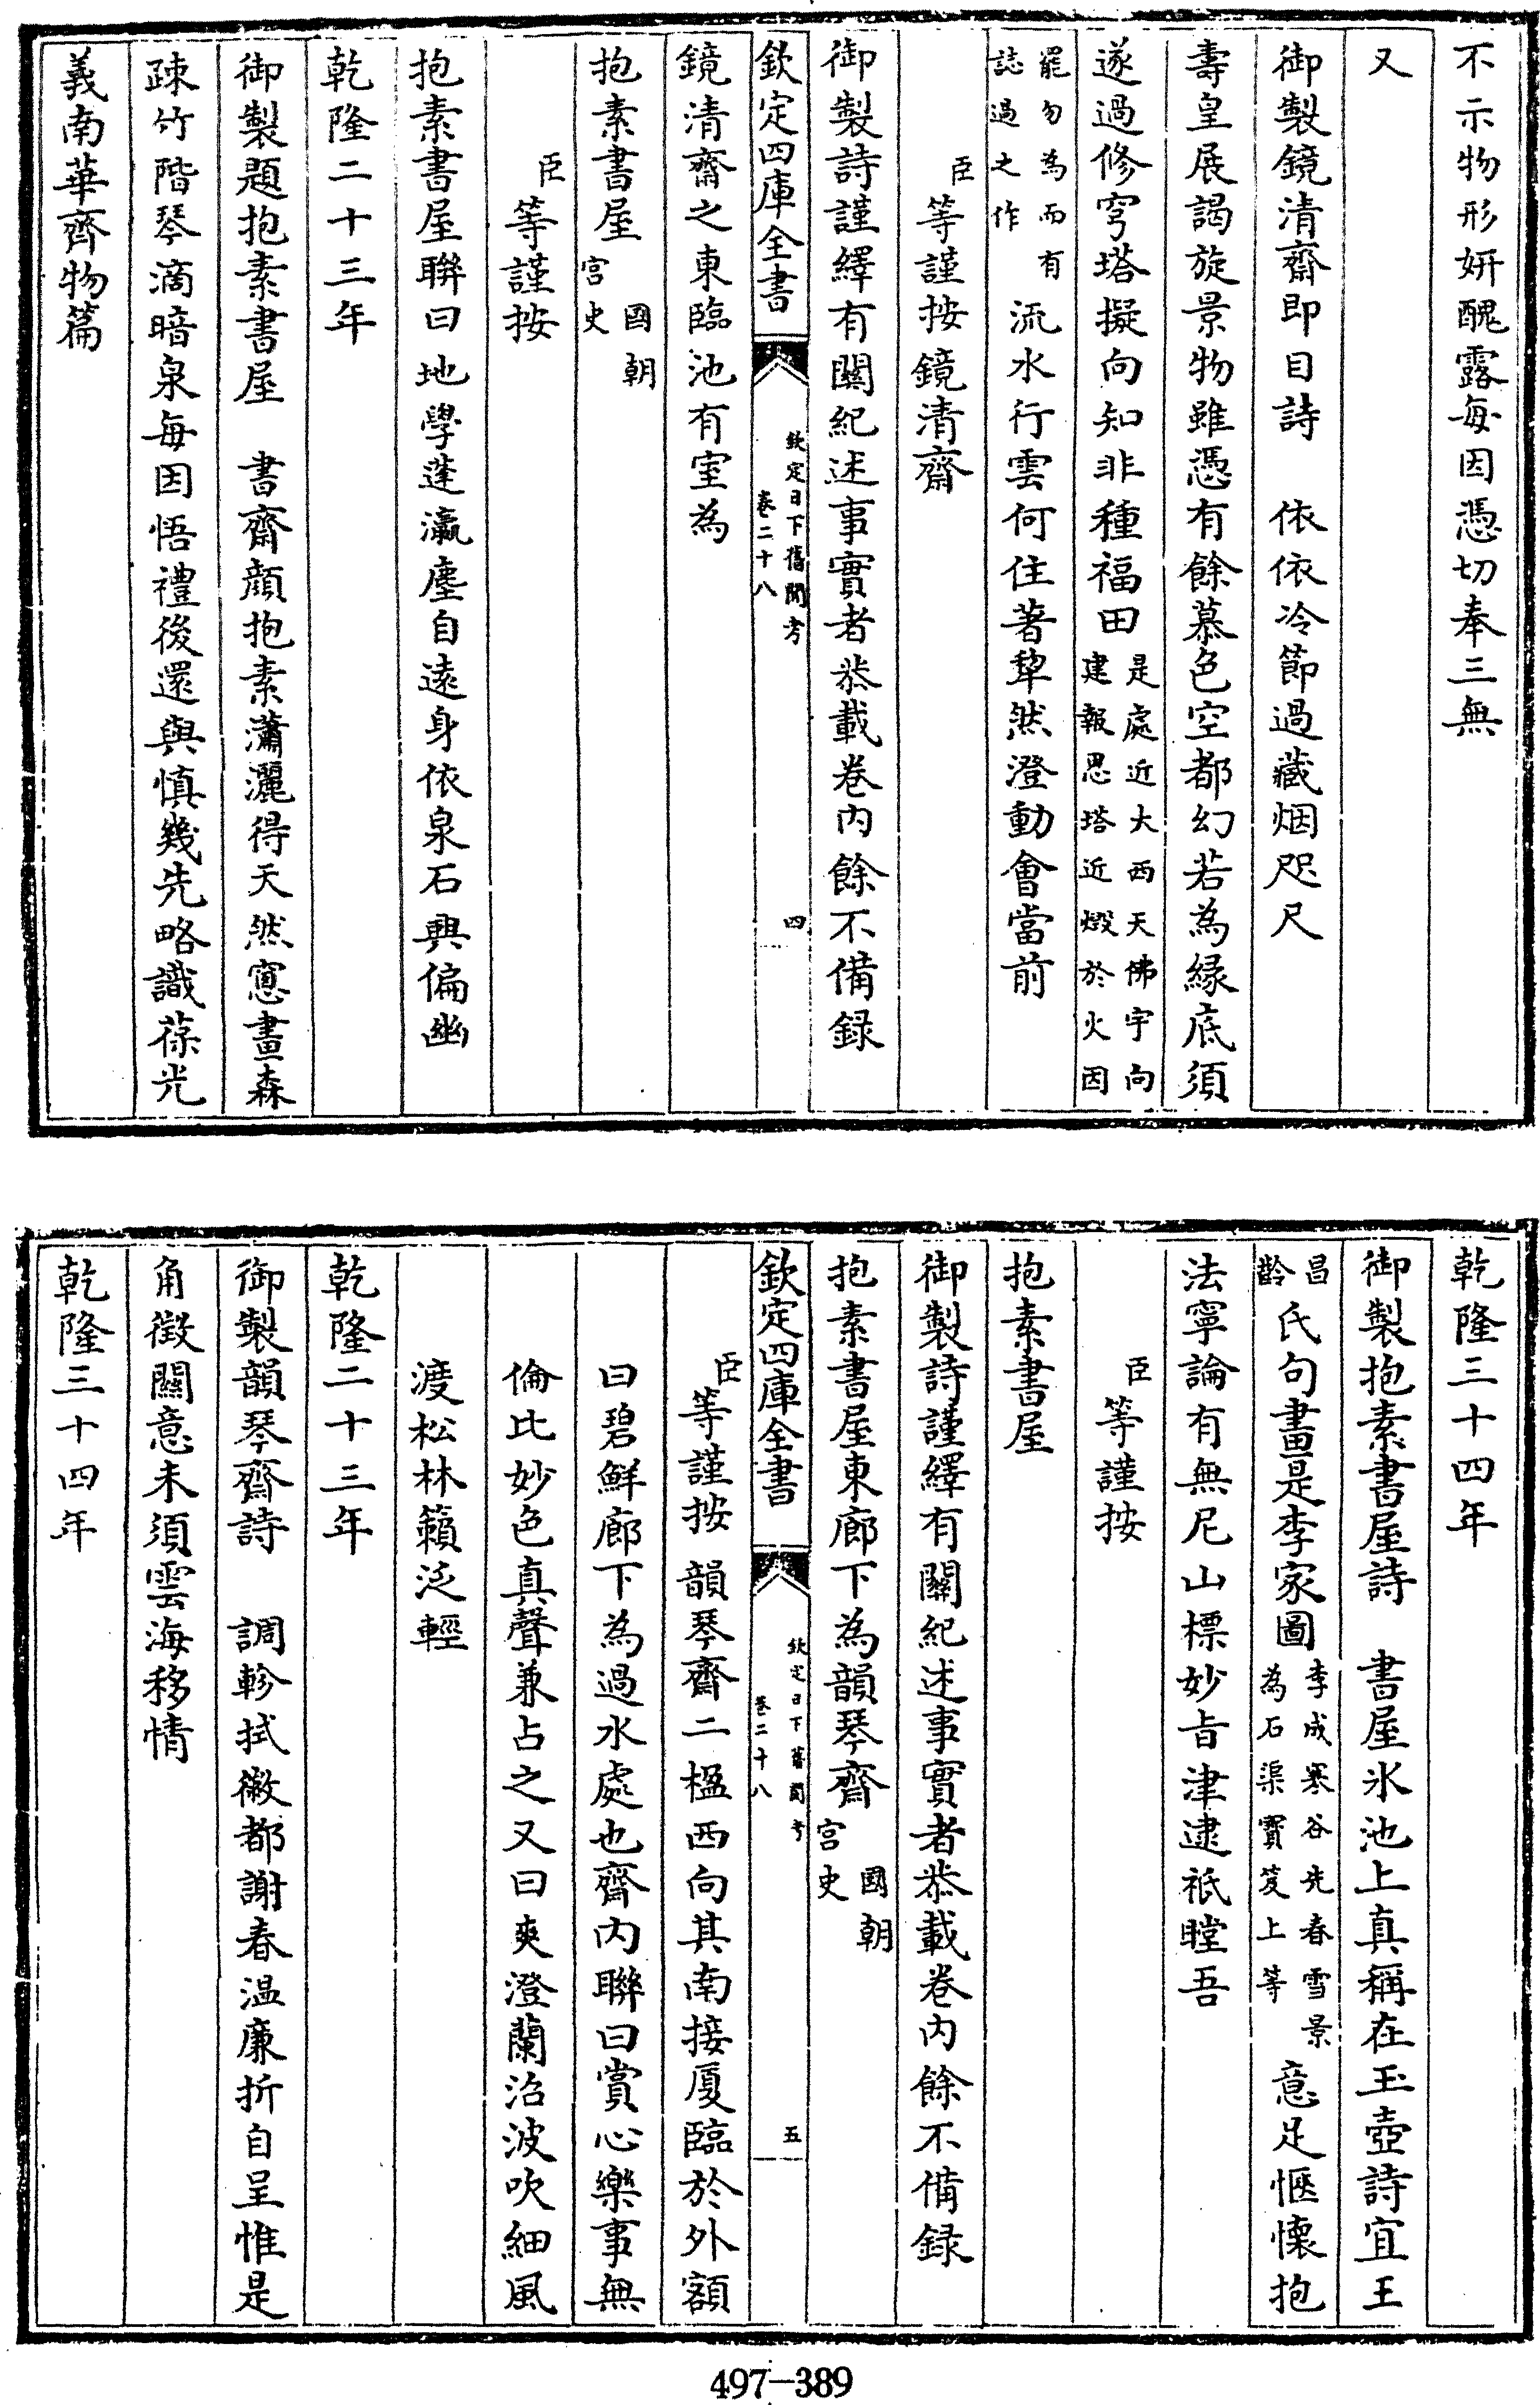 不示物形妍醜露每因憑切奉三無
又
御製鏡清齋即目詩　依依冷節過藏烟咫尺
壽皇展謁旋景物雖憑有餘慕色空都幻若為緣底須
遂過修穹塔擬向知非種福田是處近大西天佛宇向建報恩塔近燬於火因
罷勿為而有誌過之作流水行雲何住著犂然澄動會當前
臣等謹按鏡清齋
御製詩謹繹有關紀述事實者恭載卷內餘不備錄
欽定四庫全書　欽定日下舊聞考卷二十八　四
鏡清齋之東臨池有室為
抱素書屋國朝宮史
臣等謹按
抱素書屋聯曰地學蓬瀛塵自遠身依泉石興偏幽
乾隆二十三年
御製題抱素書屋　書齋顏抱素瀟灑得天然窻畫森
疎竹階琴滴暗泉每因悟禮後還與慎幾先略識葆光
義南華齊物篇
乾隆三十四年
御製抱素書屋詩　書屋氷池上真稱在玉壺詩宜王
昌齡氏句畫是李家圖李成寒谷先春雪景為石渠寶笈上等意足愜懷抱
法寧論有無尼山標妙旨津逮祇瞠吾
臣等謹按
抱素書屋
御製詩謹繹有關紀述事實者恭載卷內餘不備錄
抱素書屋東廊下為韻琴齋國朝宮史
欽定四庫全書　欽定日下舊聞考卷二十八　五
臣等謹按韻琴齋二楹西向其南接厦臨於外額
曰碧鮮廊下為過水處也齋內聯曰賞心樂事無
倫比妙色真聲兼占之又曰爽澄蘭沼波吹細風
渡松林籟泛輕
乾隆二十三年
御製韻琴齋詩　調軫拭徽都謝春温廉折自呈惟是
角徵關意未須雲海移情
乾隆三十四年
497-389